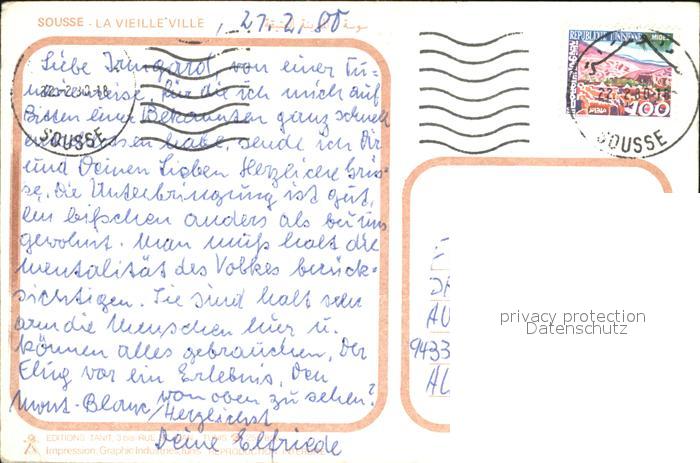 SOUSSE - LA VIEILLE VILLE
21.2.80
Liebe Irmgard von einer Tu=
nesienreise für die ich mich auf
Bitten einer Bekannten ganz schnell
habe, sende ich Dir
und Deinen Lieben Herzliche Grüs=
se. Die Unterbringung ist gut,
ein bißchen anders als bei uns
gewohnt. Man muß halt die
Mentalität des Volkes berück=
sichtigen. Sie sind halt sehr
arm die Menschen hier u.
können alles gebrauchen, der
Flug war ein Erlebnis, den
Mont-Blanc von oben zu sehen?
Herzlichst
Deine Elfriede
REPUBLIQUE TUNISIENNE
MIDES
100
22-2.80-18
SOUSSE
22-2.80-18
SOUSSE
AU
9433
privacy protection
Datenschutz
EDITIONS TANIT, 3 bis RUE
Impression, Graphic Industries, Tunis